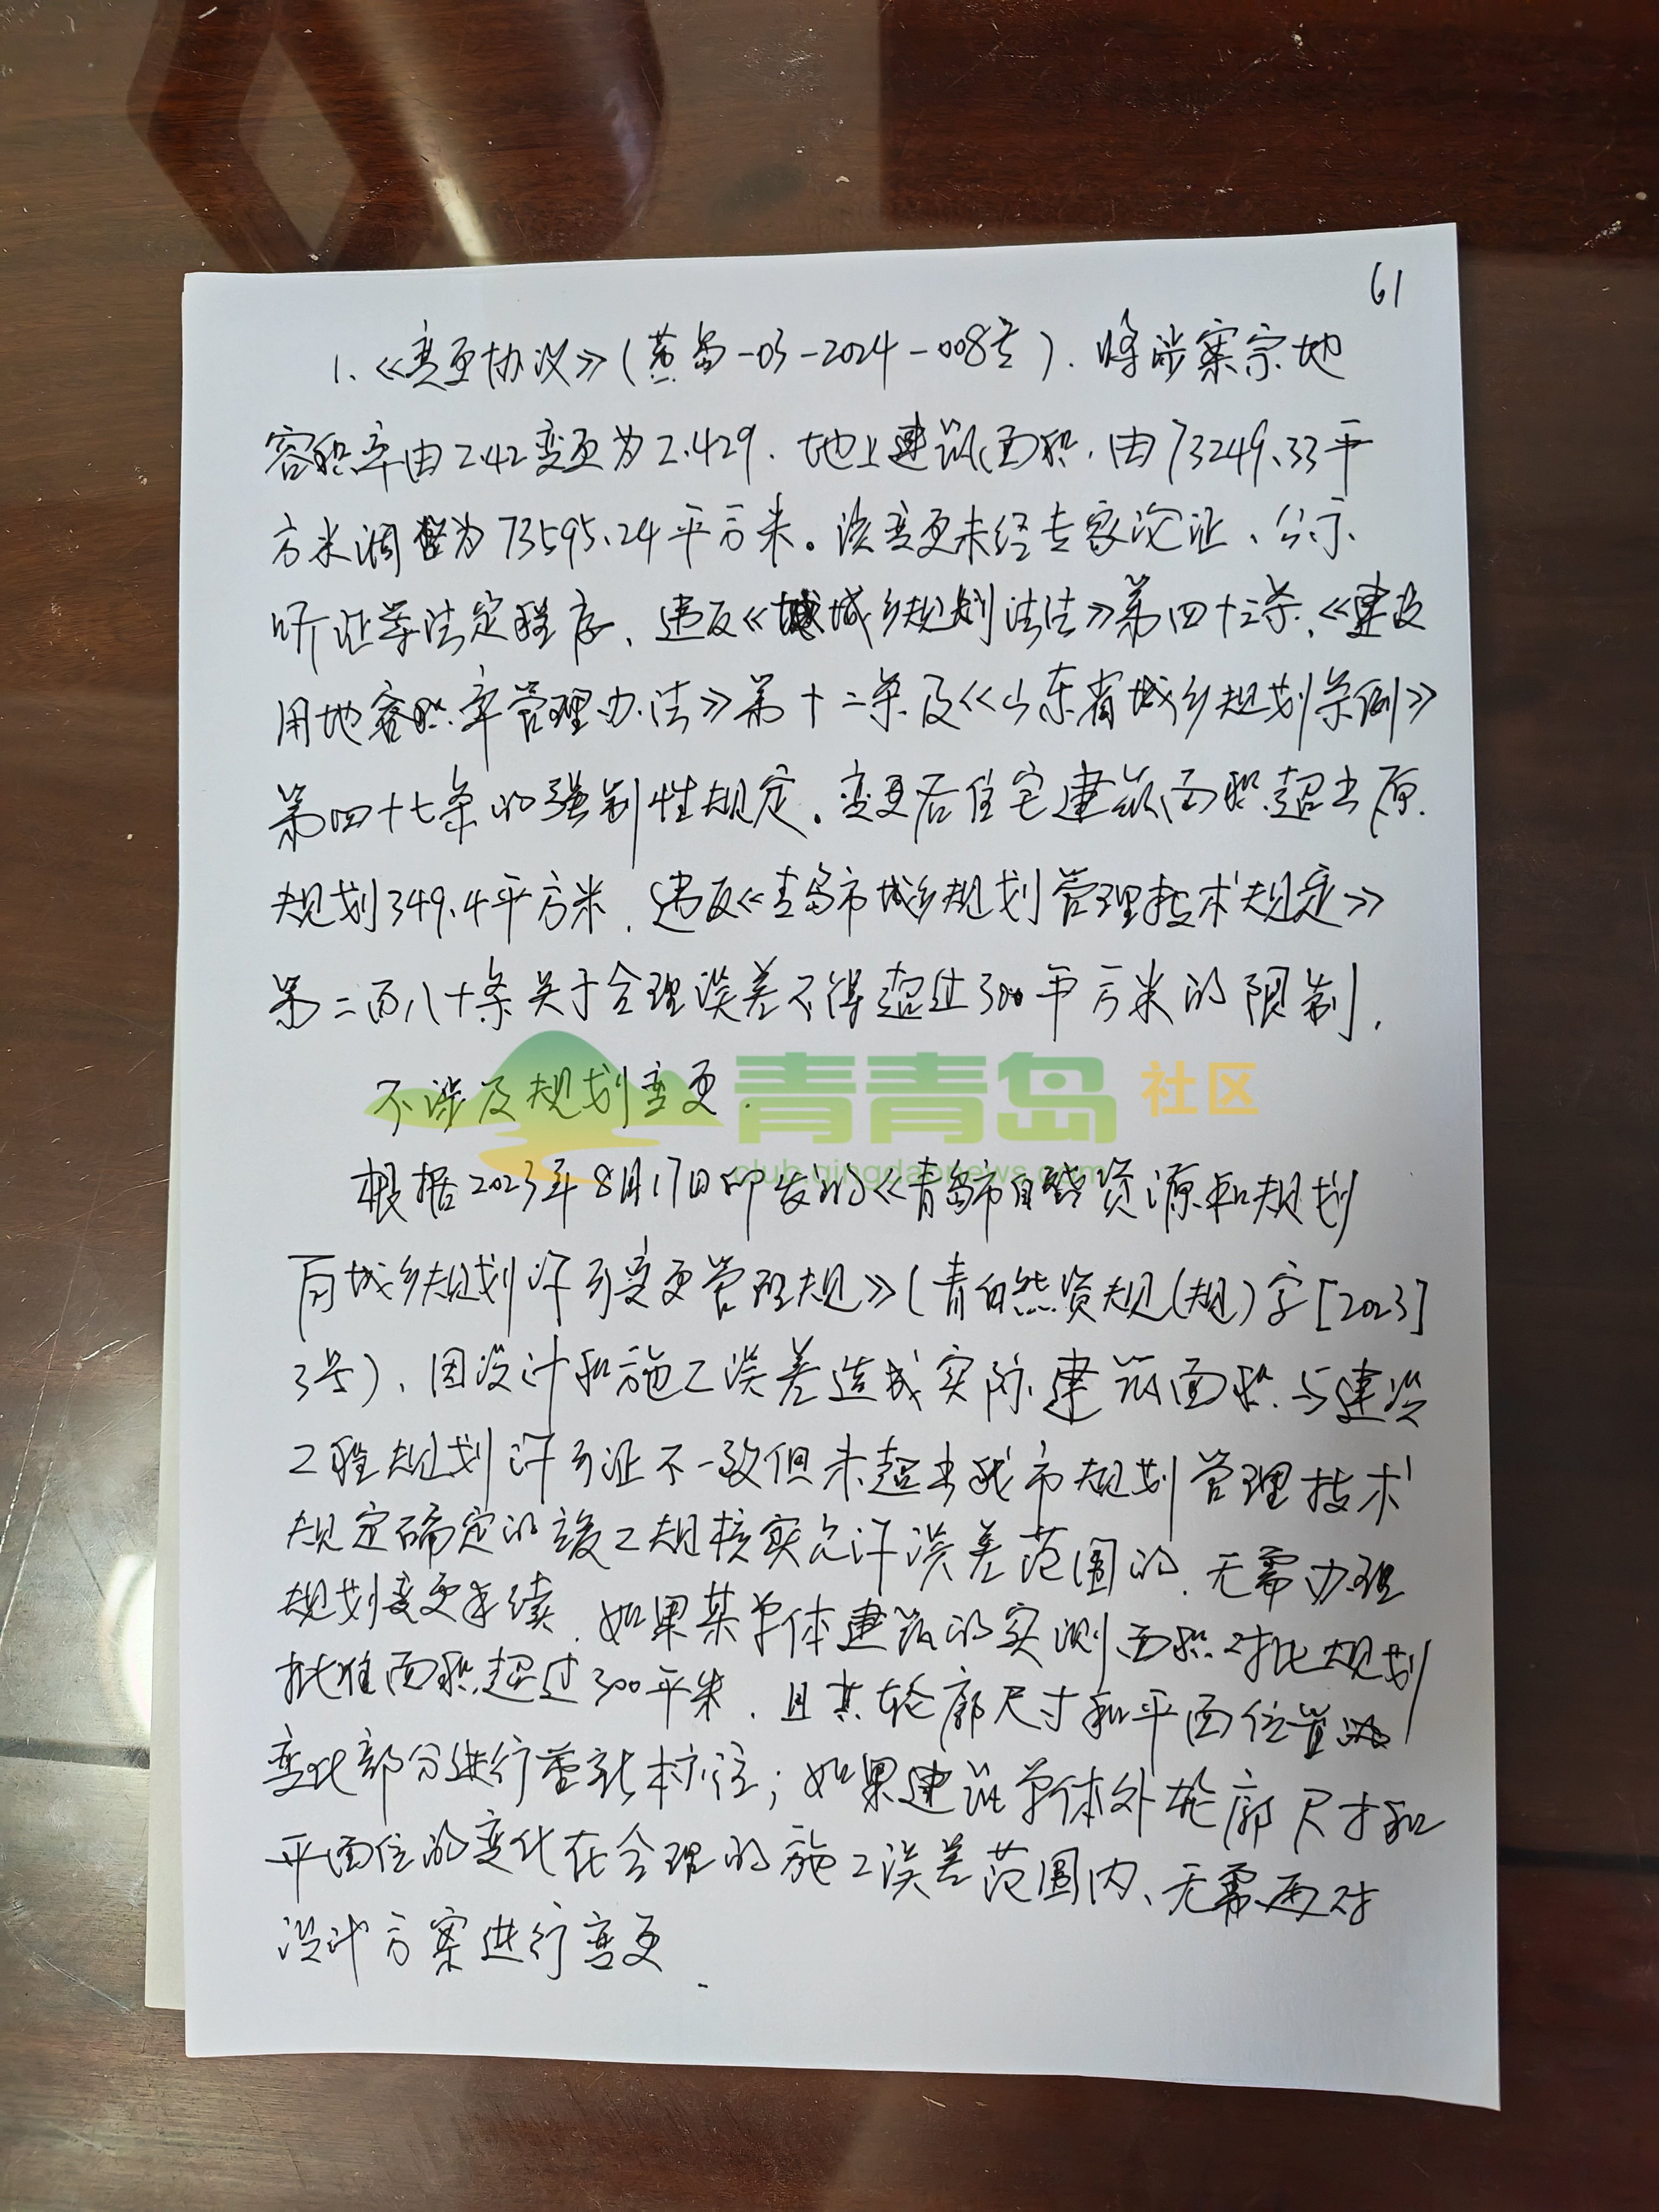 61
1、《变更协议》(黄岛-03-2024-008号)、将涉案宗地
容积率由2.42变更为2.429、地上建筑面积、由73249.33平
方米调整为73595.24平方米。该变更未经专家论证、公示、
听证等法定程序、违反《城乡规划法法》第四十三条、《建设
用地容积率管理办法》第十二条及《山东省城乡规划条例》
第四十七条的强制性规定。变更后住宅建筑面积超出原
规划349.4平方米、违反《青岛市城乡规划管理技术规定》
第二百八十条关于合理误差不得超过300平方米的限制.
不涉及规划变更.
青青岛 社区
club.qingdaonews.com
根据2023年8月17日印发的《青岛市自然资源和规划
局城乡规划许可变更管理规》(青自然资规(规)字[2023]
3号)、因设计和施工误差造成实际建筑面积与建设
工程规划许可证不一致但未超出我市规划管理技术
规定确定的竣工规核实允许误差范围的、无需办理
规划变更手续、如果某单体建筑的实测面积对比规划
批准面积超过300平米、且其轮廓尺寸和平面位置
变化部分进行重新标注;如果建筑单体外轮廓尺寸和
平面位的变化在合理的施工误差范围内、无需再对
设计方案进行变更.